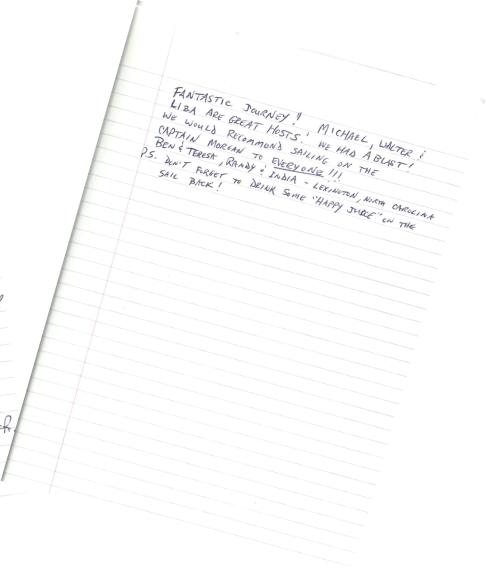 FANTASTIC JOURNEY! MICHAEL, WALTER &
LIZA ARE GREAT HOSTS. WE HAD A BLAST!
WE WOULD RECOMMEND SAILING ON THE
CAPTAIN MORGAN TO EVERYONE!!!
BEN & TERESA, RANDY & INDIA - LEXINGTON, NORTH CAROLINA
P.S. DON'T FORGET TO DRINK SOME "HAPPY JUICE" ON THE
SAIL BACK!